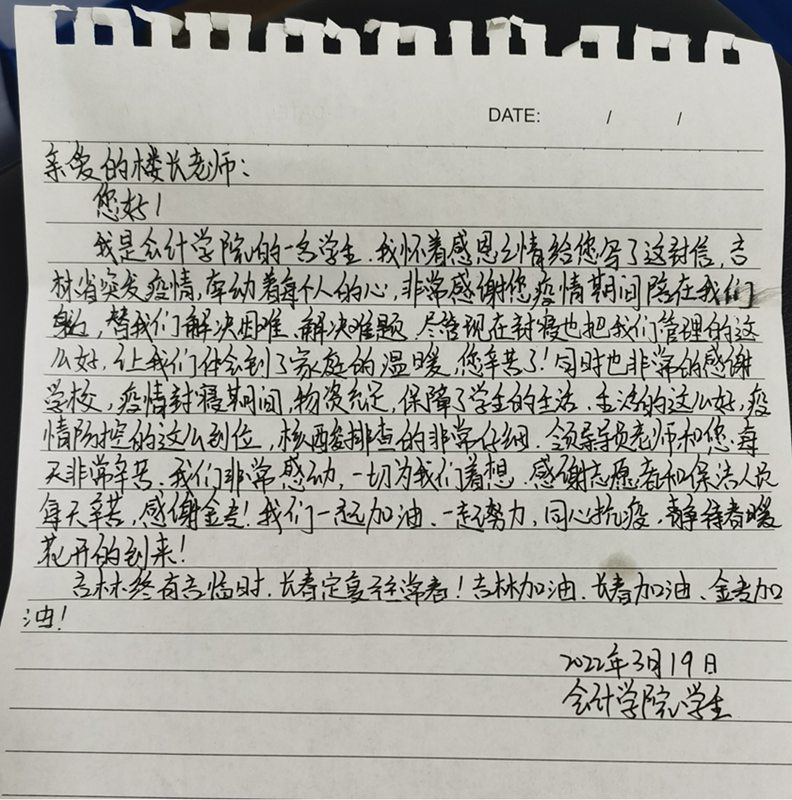 DATE: / /
亲爱的楼长老师：
您好！
我是会计学院的一名学生，我怀着感恩之情给您写了这封信，吉
林省突发疫情，牵动着每个人的心，非常感谢您疫情期间陪在我们
身边，替我们解决困难、解决难题，尽管现在封寝也把我们管理的这
么好，让我们体会到了家庭的温暖，您辛苦了！同时也非常的感谢
学校，疫情封寝期间，物资充足，保障了学生的生活，生活的这么好，疫
情防控的这么到位，核酸排查的非常仔细，领导导员老师和您每
天非常辛苦，我们非常感动，一切为我们着想，感谢志愿者和保洁人员
每天辛苦，感谢金专！我们一起加油、一起努力，同心抗疫，静待春暖
花开的到来！
吉林终有吉临时，长春定复往常春！吉林加油、长春加油、金专加
油！
2022年3月19日
会计学院学生